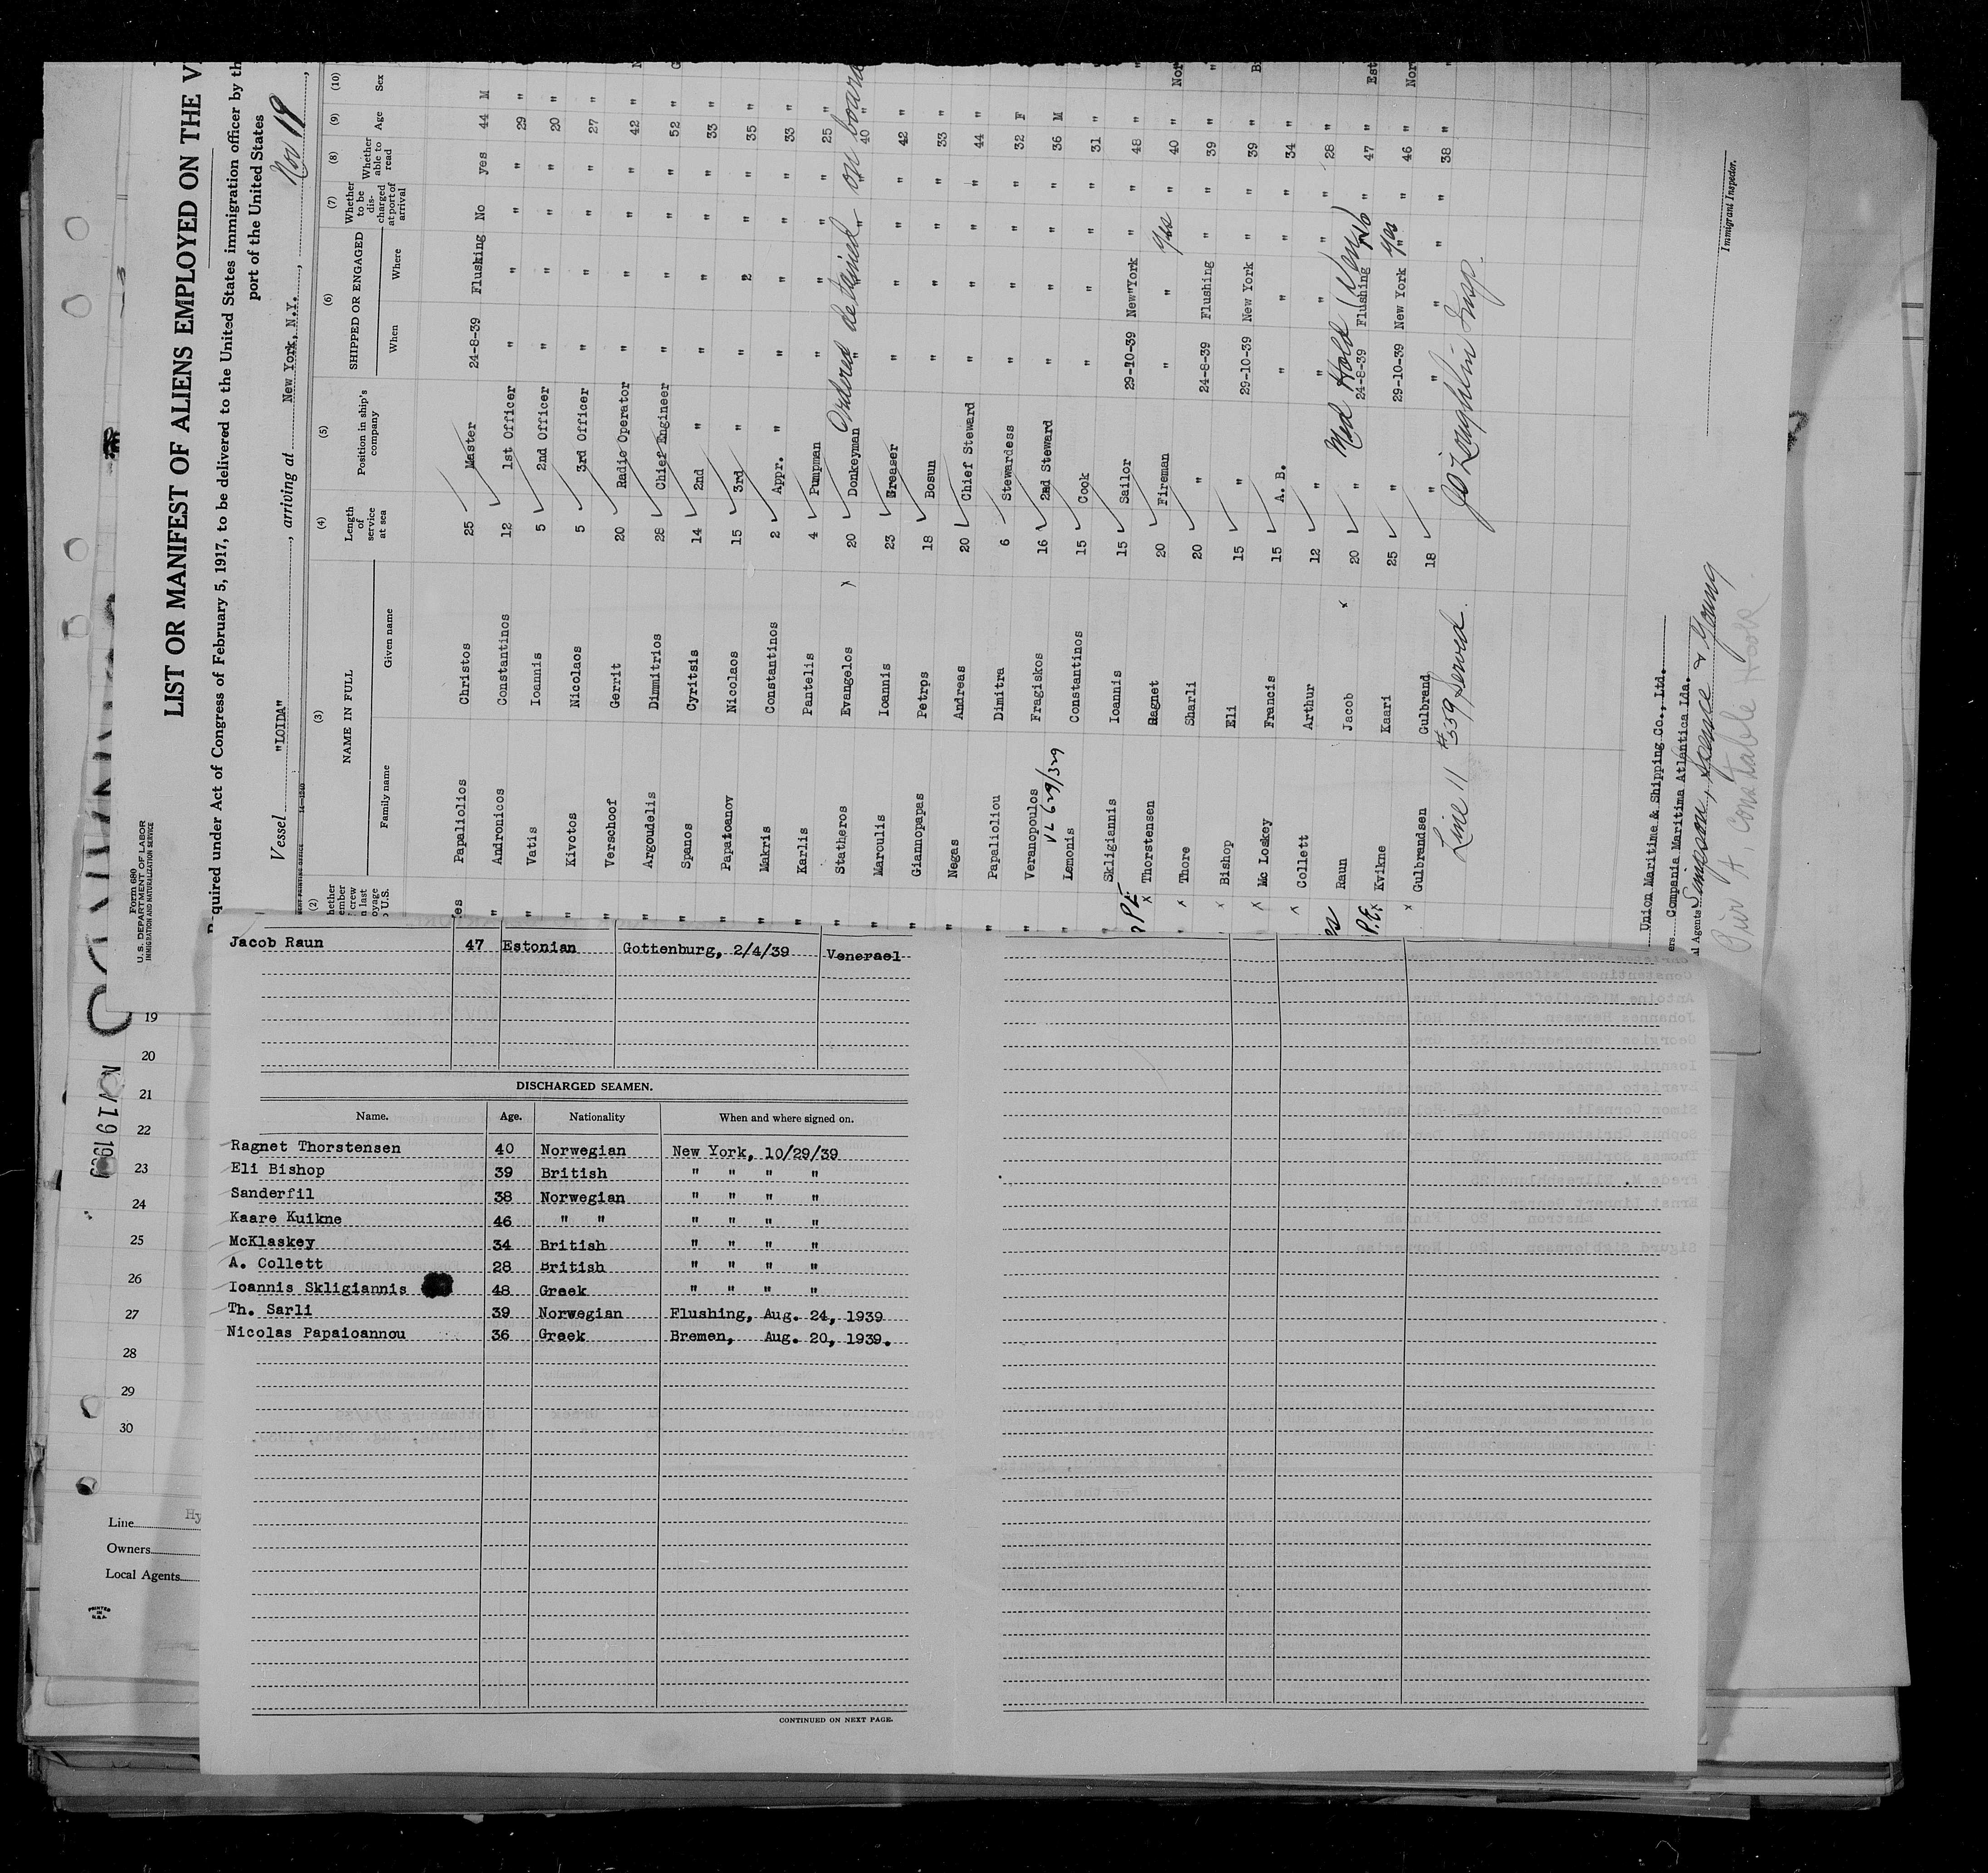 Form 680
U. S. DEPARTMENT OF LABOR
IMMIGRATION AND NATURALIZATION SERVICE
LIST OR MANIFEST OF ALIENS EMPLOYED ON THE
Required under Act of Congress of February 5, 1917, to be delivered to the United States immigration officer by th
port of the United States
Vessel "LOIDA", arriving at New York, N.Y., Nov 19
(2) (3) (4) (5) (6) (7) (8) (9) (10)
NAME IN FULL Length of service at sea Position in ship's company SHIPPED OR ENGAGED Whether to be discharged at port of arrival Whether able to read Age Sex
Family name Given name When Where
Papaliolios Christos 25 Master 24-8-39 Flushing No yes 44 M
" Andronicos Constantinos 12 1st Officer " " " " 29 "
" Vatis Ioannis 5 2nd Officer " " " " 20 "
" Kivotos Nicolaos 5 3rd Officer " " " " 27 "
" Verschoof Gerrit 20 Radio Operator " " " " 42 "
" Argoudelis Dimmitrios 28 Chief Engineer " " " " 52 "
" Spanos Cyritsis 14 2nd " " " " " 33 "
" Papaioanov Nicolaos 15 3rd " " " " " 35 "
" Makris Constantinos 2 Appr. " " " " " 33 "
" Karlis Pantelis 4 Pumpman " " " " 25 "
" Statheros Evangelos x 20 Donkeyman Ordered detained on board 40
" Maroulis Ioannis 23 Greaser " " " " 42 "
" Giannopapas Petros 18 Bosun " " " " 33 "
" Negas Andreas 20 Chief Steward " " " " 44 "
" Papalioliou Dimitra 6 Stewardess " " " " 32 F
" Veranopoulos Fragiskos 16 2nd Steward " " " " 36 M
VL 629/329
" Lemonis Constantinos 15 Cook " " " " 31 "
Skligiannis Ioannis 15 Sailor 29-10-39 New York " " 48 "
P.E. x Thorstensen Ragnet 20 Fireman " " yes " 40 " Nor
x Thore Sharli 20 " 24-8-39 Flushing " " 39 " "
x Bishop Eli 15 " 29-10-39 New York " " 39 " B
x Mc Loskey Francis 15 A. B. " " " " 34 "
x Collett Arthur 12 " " " " " 28 "
Raun Jacob x 20 " 24-8-39 Flushing No " 47 " Est
Med Hold (Ven)
P.E. x Kvikne Kaari 25 " 29-10-39 New York yes " 46 " Nor
x Gulbrandsen Gulbrand 18 " " " " " 38 " "
Line 11 #259 Served.
Immigrant Inspector.
Union Maritime & Shipping Co., Ltd.
ers Compania Maritima Atlantica Lda.
l Agents Simpson, Spence & Young
Pier A, Constable Hook
Jacob Raun 47 Estonian Gottenburg, 2/4/39 Venerael
DISCHARGED SEAMEN.
Name. Age. Nationality When and where signed on.
Ragnet Thorstensen 40 Norwegian New York, 10/29/39
Eli Bishop 39 British " " " "
Sanderfil 38 Norwegian " " " "
Kaare Kuikne 46 " " " " " "
McKlaskey 34 British " " " "
A. Collett 28 British " " " "
Ioannis Skligiannis 48 Greek " " " "
Th. Sarli 39 Norwegian Flushing, Aug. 24, 1939
Nicolas Papaioannou 36 Greek Bremen, Aug. 20, 1939.
CONTINUED ON NEXT PAGE.
19
20
21
22
23
24
25
26
27
28
29
30
NOV 19 1939
Line Hy
Owners
Local Agents
PRINTED IN U.S.A.